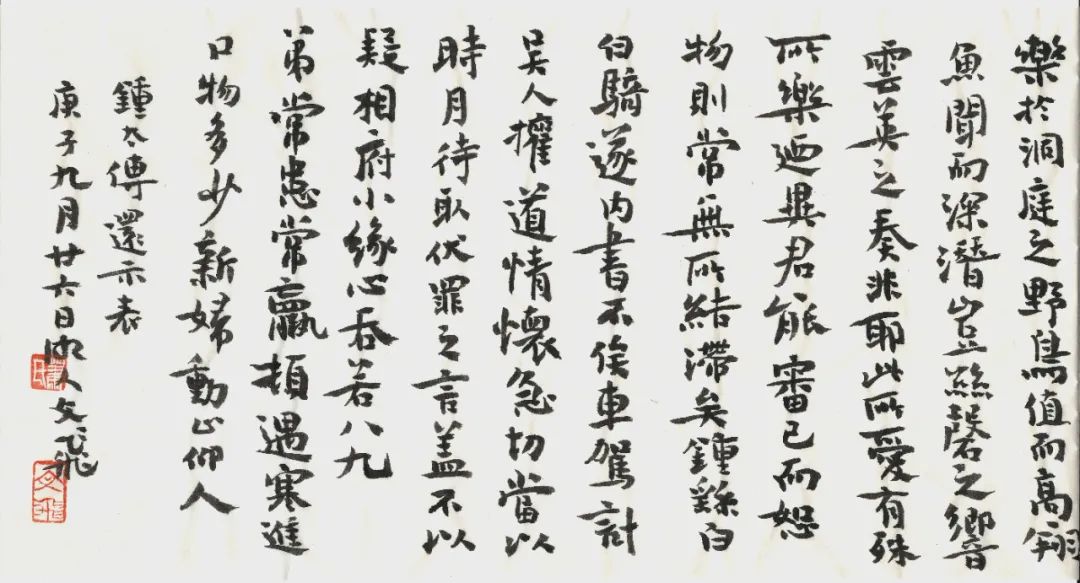 樂於洞庭之野鳥值而高翔
魚聞而深潛豈絲磬之響
雲英之奏非耶此所愛有殊
所樂廼異君能審己而恕
物則常無所結滯矣鍾繇白
白騎遂內書不俟車駕計
吳人權道情懷急切當以
時月待取伏罪之言蓋不以
疑相府小緣心吞若八九
弟常患常羸頓遇寒進
口物多少新婦動止仰人
鍾太傅還示表
庚子九月廿六日湘人文飛
文飛